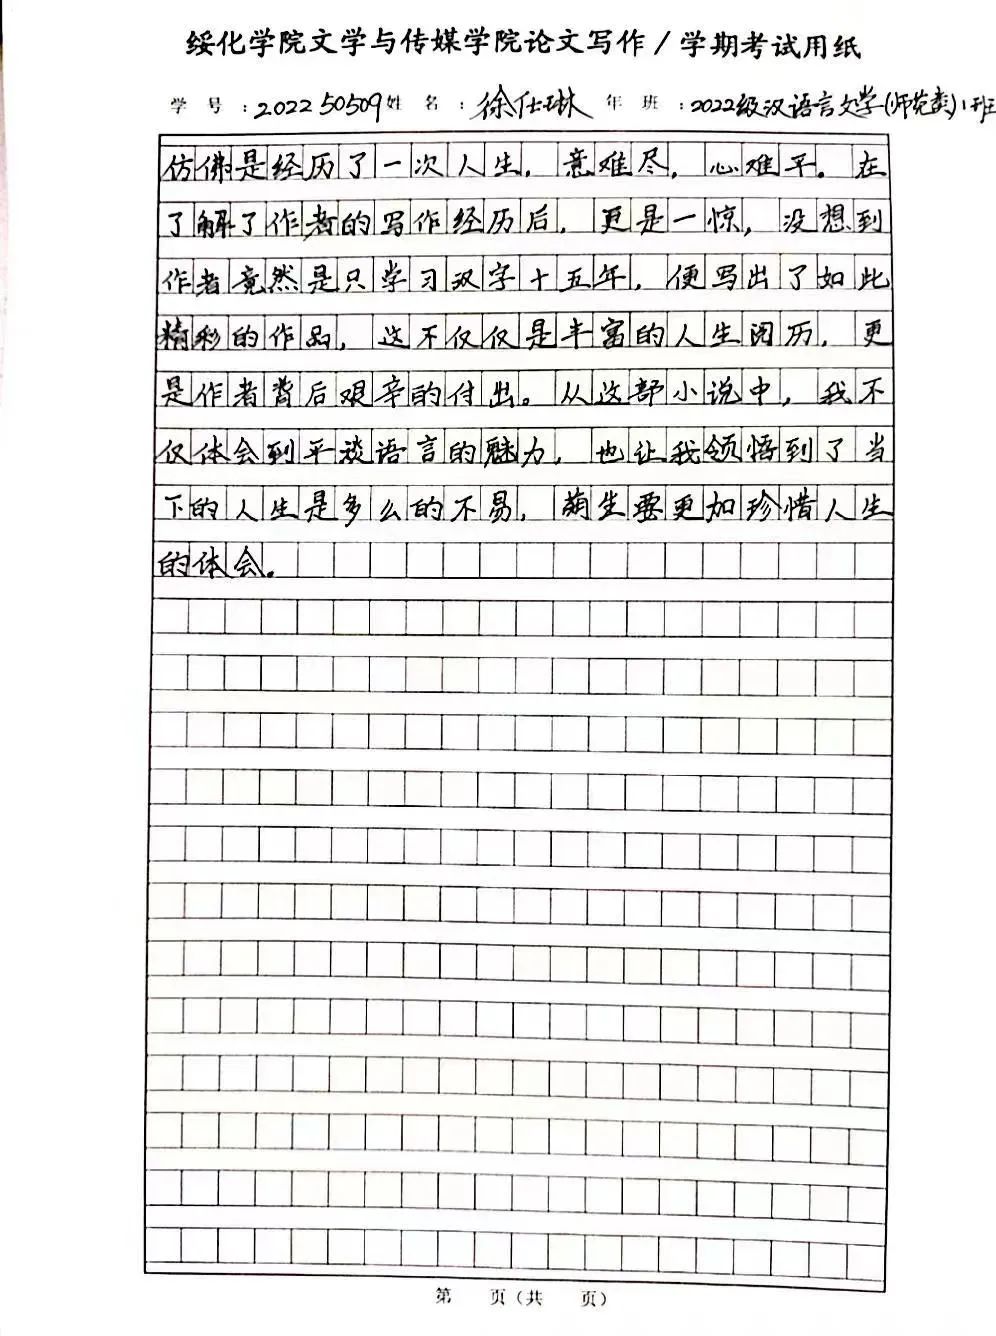 绥化学院文学与传媒学院论文写作/学期考试用纸
学号:202250509姓名:徐仕琳 年班:2022级汉语言文学(师范类)1班
仿佛是经历了一次人生,意难尽,心难平。在
了解了作者的写作经历后,更是一惊,没想到
作者竟然是只学习汉字十五年,便写出了如此
精彩的作品,这不仅仅是丰富的人生阅历,更
是作者背后艰辛的付出。从这部小说中,我不
仅体会到平淡语言的魅力,也让我领悟到了当
下的人生是多么的不易,萌生要更加珍惜人生
的体会。
第 页(共 页)